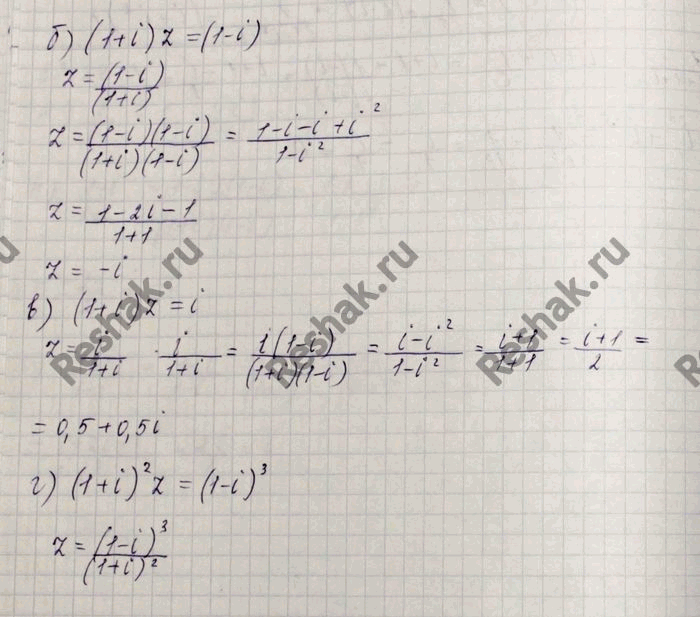 б) (1+i) z = (1-i)
z = (1-i)/(1+i)
z = (1-i)(1-i)/(1+i)(1-i) = 1-i-i+i²/1-i²
z = 1-2i-1/1+1
z = -i
в) (1+i) z = i
z = i/1+i · i/1+i = i(1-i)/(1+i)(1-i) = i-i²/1-i² = i+1/1+1 = i+1/2 =
= 0,5+0,5i
г) (1+i)² z = (1-i)³
z = (1-i)³/(1+i)²
Reshak.ru
Reshak.ru
Reshak.ru